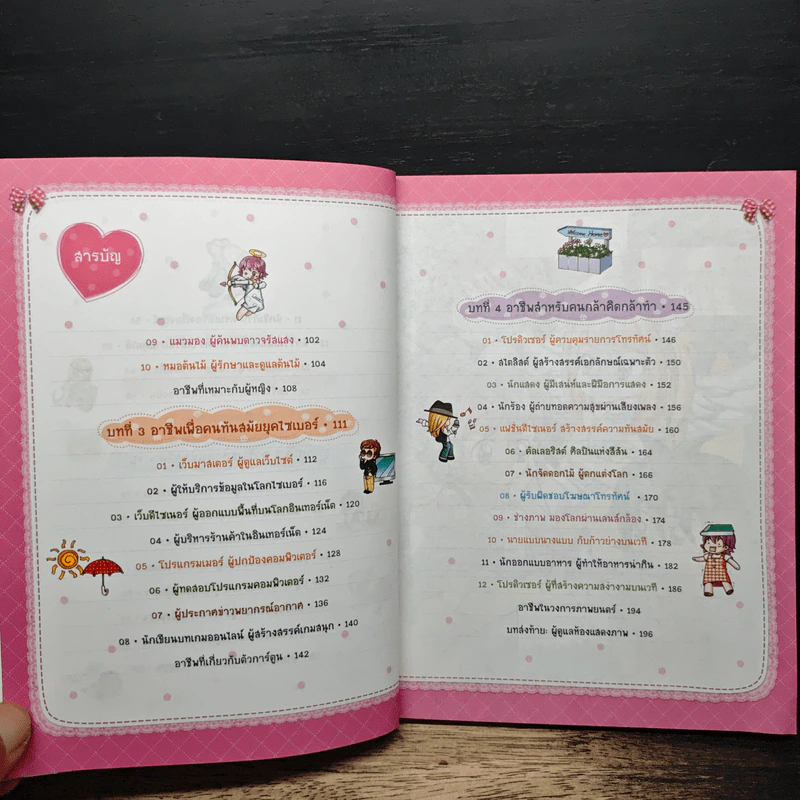 สารบัญ
09 • แมวมอง ผู้ค้นพบดาวจรัสแสง • 102
10 • หมอต้นไม้ ผู้รักษาและดูแลต้นไม้ • 104
อาชีพที่เหมาะกับผู้หญิง • 108
บทที่ 3 อาชีพเพื่อคนทันสมัยยุคไซเบอร์ • 111
01 • เว็บมาสเตอร์ ผู้ดูแลเว็บไซต์ • 112
02 • ผู้ให้บริการข้อมูลในโลกไซเบอร์ • 116
03 • เว็บดีไซเนอร์ ผู้ออกแบบพื้นที่บนโลกอินเทอร์เน็ต • 120
04 • ผู้บริหารร้านค้าในอินเทอร์เน็ต • 124
05 • โปรแกรมเมอร์ ผู้ปกป้องคอมพิวเตอร์ • 128
06 • ผู้ทดสอบโปรแกรมคอมพิวเตอร์ • 132
07 • ผู้ประกาศข่าวพยากรณ์อากาศ • 136
08 • นักเขียนบทเกมออนไลน์ ผู้สร้างสรรค์เกมสนุก • 140
อาชีพที่เกี่ยวกับตัวการ์ตูน • 142
Welcome Home
บทที่ 4 อาชีพสำหรับคนกล้าคิดกล้าทำ • 145
01 • โปรดิวเซอร์ ผู้ควบคุมรายการโทรทัศน์ • 146
02 • สไตลิสต์ ผู้สร้างสรรค์เอกลักษณ์เฉพาะตัว • 150
03 • นักแสดง ผู้มีเสน่ห์และฝีมือการแสดง • 152
04 • นักร้อง ผู้ถ่ายทอดความสุขผ่านเสียงเพลง • 156
05 • แฟชั่นดีไซเนอร์ สร้างสรรค์ความทันสมัย • 160
06 • คัลเลอริสต์ ศิลปินแห่งสีสัน • 164
07 • นักจัดดอกไม้ ผู้ตกแต่งโลก • 166
08 • ผู้รับผิดชอบโฆษณาโทรทัศน์ • 170
09 • ช่างภาพ มองโลกผ่านเลนส์กล้อง • 174
10 • นายแบบนางแบบ กับก้าวย่างบนเวที • 178
11 • นักออกแบบอาหาร ผู้ทำให้อาหารน่ากิน • 182
12 • โปรดิวเซอร์ ผู้ที่สร้างความสง่างามบนเวที • 186
อาชีพในวงการภาพยนตร์ • 194
บทส่งท้าย: ผู้ดูแลห้องแสดงภาพ • 196